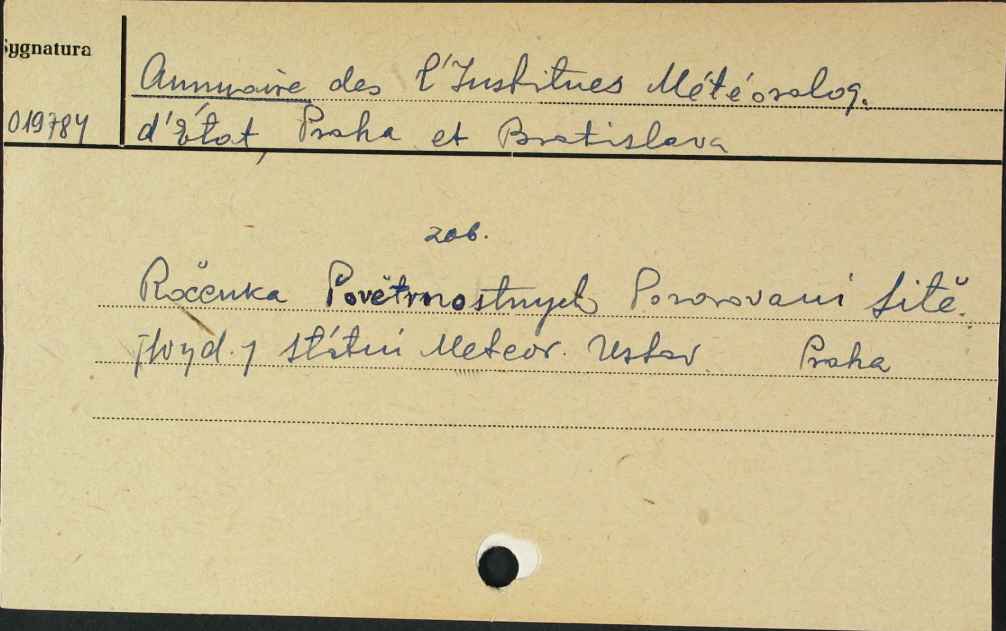 Sygnatura
Annuaire des l'Institues Météorolog.
019784
d'État, Praha et Bratislava
zob.
Ročenka Povětrnostnych Pozorovani Sitě.
[wyd.] Státni Meteor. Ustav Praha